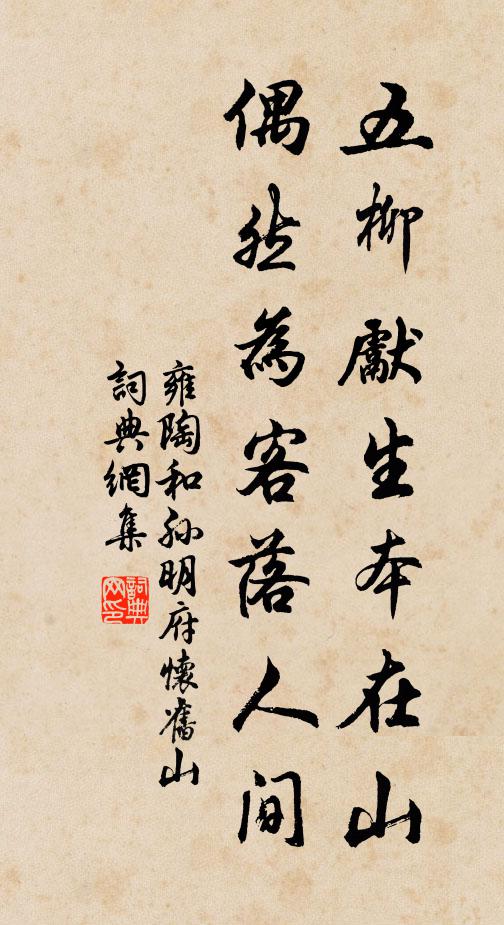 五柳獻生本在山
偶然為客落人間
雍陶和孫明府懷舊山
詞典網集
詞典
网印